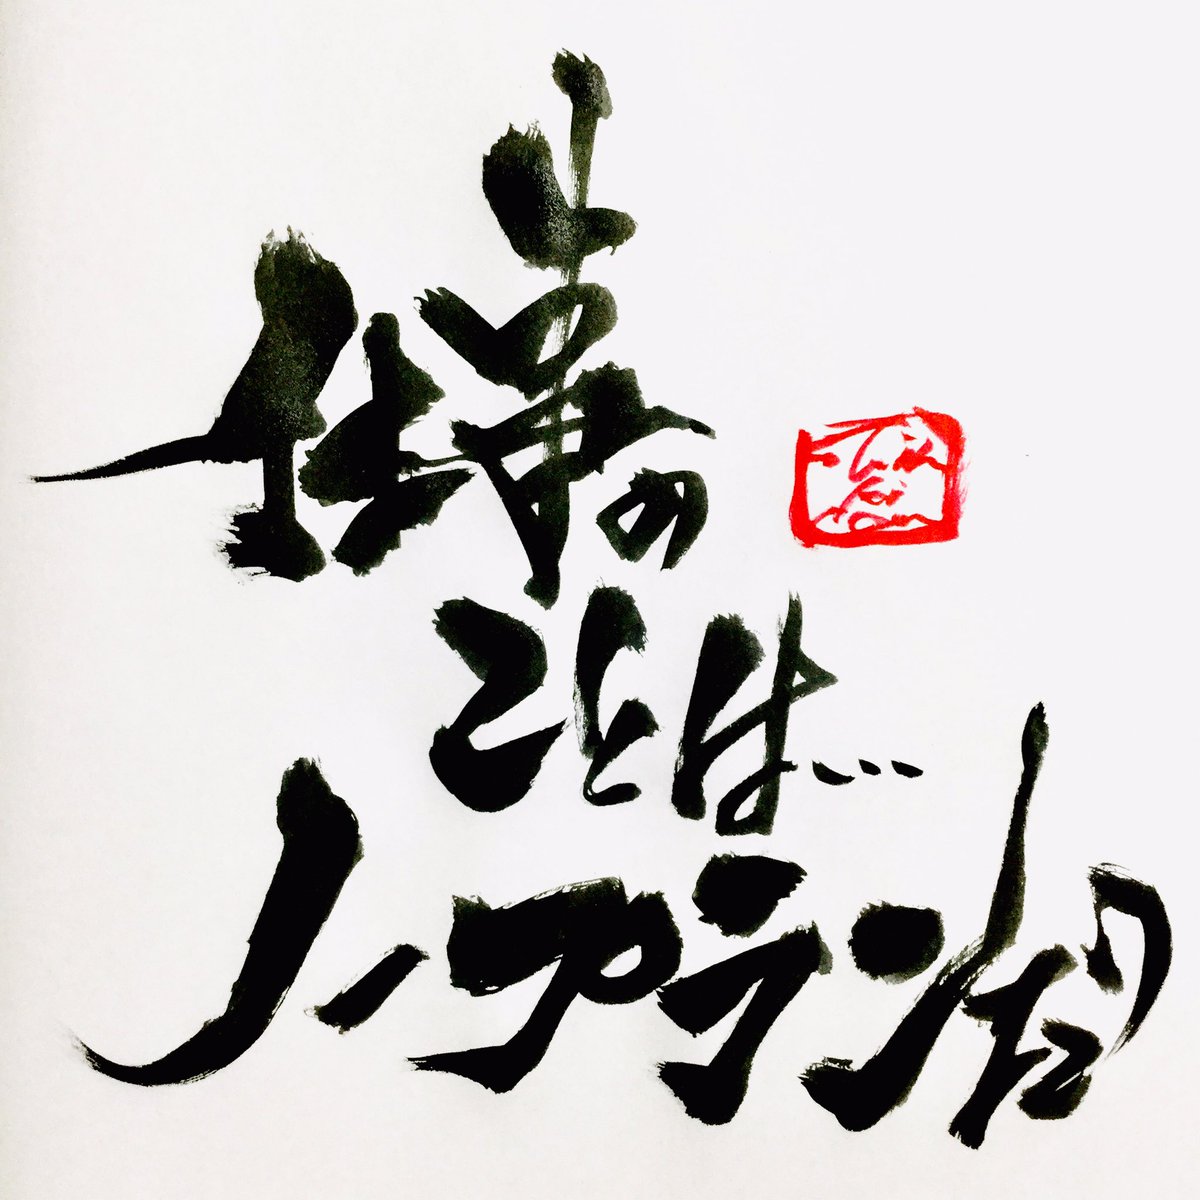 仕事の
ことは…
ノープランだ